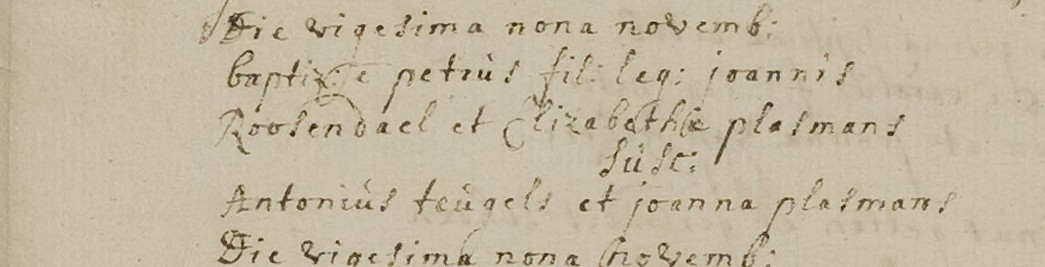 Die vigesima nona novemb:
baptiz: e petrùs fil: leg: joannis
Roosendael et Elizabethæ plasmans
sùsc:
Antoniùs teùgels et joanna plasmans
Die vigesima nona novemb: